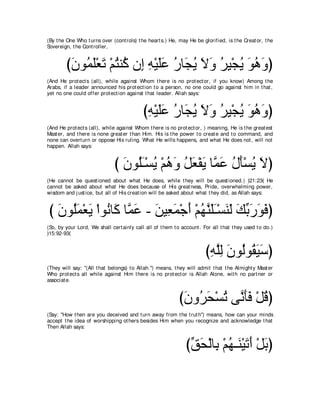 (By the One Who turns over (controls) the hearts.) He, may He be glorified, is the Creator, the
Sovereign, the Controller,
(وَهُوَ يُجْيِرُ وَلاَ يُجَارُ عَلَيْهِ إِن كُنتُمْ تَعْلَمُونَ)
(And He protects (all), while against Whom there is no protector, if you know) Among the
Arabs, if a leader announced his protection to a person, no one could go against him in that,
yet no one could offer protection against that leader. Allah says:
(وَهُوَ يُجْيِرُ وَلاَ يُجَارُ عَلَيْهِ)
(And He protects (all), while against Whom there is no protector, ) meaning, He is the greatest
Master, and there is none greater than Him. His is the power to create and to command, and
none can overturn or oppose His ruling. What He wills happens, and what He does not, will not
happen. Allah says:
(لاَ يُسْأَلُ عَمَّا يَفْعَلُ وَهُمْ يُسْـَلُونَ )
(He cannot be questioned about what He does, while they will be questioned.) (21:23( He
cannot be asked about what He does because of His greatness, Pride, overwhelming power,
wisdom and justice, but all of His creation will be asked about what they did, as Allah says:
(فَوَرَبِّكَ لَنَسْـَلَنَّهُمْ أَجْمَعِينَ - عَمَّا كَانُواْ يَعْمَلُونَ )
(So, by your Lord, We shall certainly call all of them to account. For all that they used to do.)
)15:92-93(
(سَيَقُولُونَ لِلَّهِ)
(They will say: "(All that belongs) to Allah.'') means, they will admit that the Almighty Master
Who protects all while against Him there is no protector is Allah Alone, with no partner or
associate.
(قُلْ فَأَنَّى تُسْحَرُونَ)
(Say: "How then are you deceived and turn away from the truth'') means, how can your minds
accept the idea of worshipping others besides Him when you recognize and acknowledge that
Then Allah says:
(بَلْ أَتَيْنَـهُمْ بِالْحَقِّ)